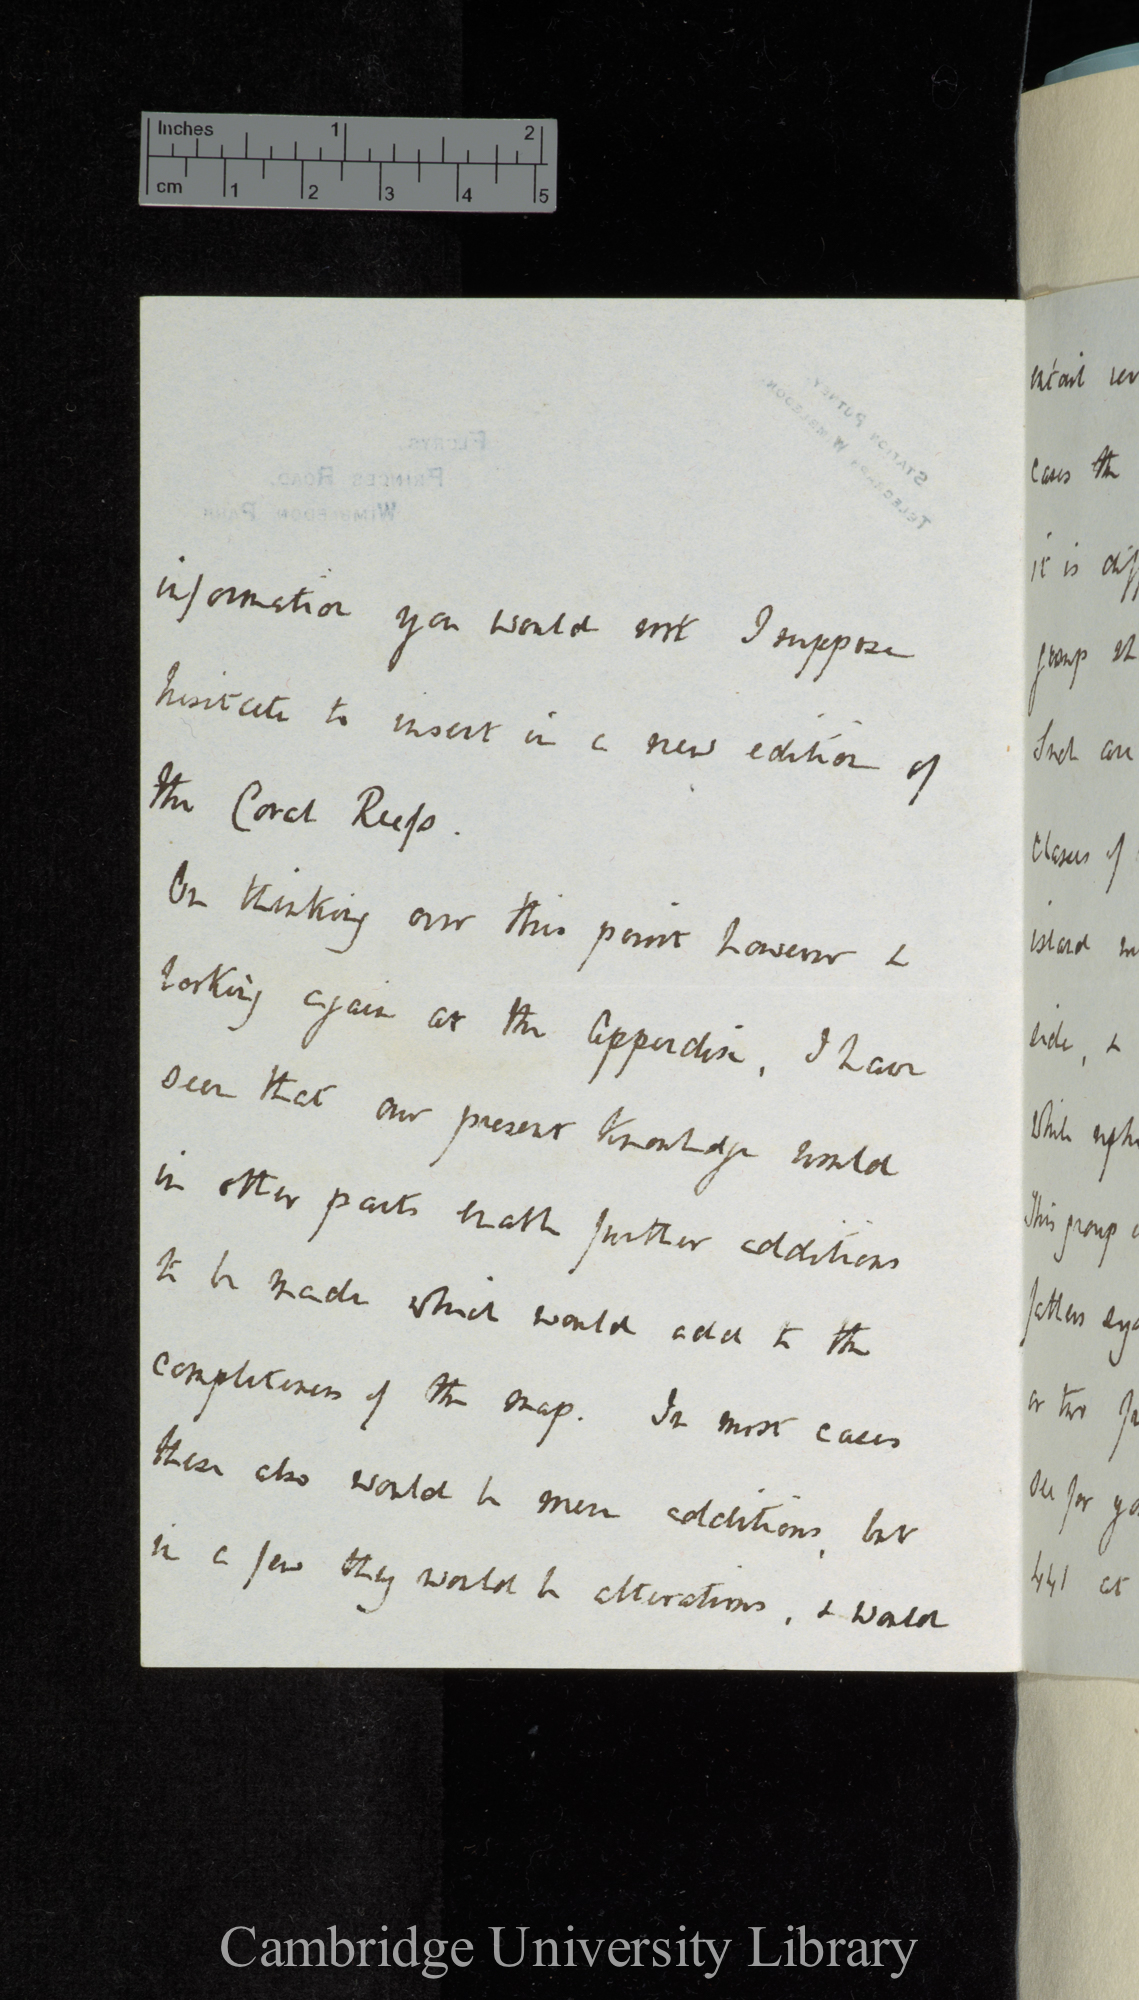 Inches 1 2
cm 1 2 3 4 5
STATION PUTNEY
TELEGRAM WIMBLEDON
FLORYS,
PRINCES ROAD,
WIMBLEDON PARK
information you would not I suppose
hesitate to insert in a new edition of
the Coral Reefs.
On thinking over this point however &
looking again at the Appendix, I have
seen that our present knowledge would
in other parts enable further additions
to be made which would add to the
completeness of the map. In most cases
these also would be mere additions, but
in a few they would be alterations, & would
entail
cases the
it is
group
Such are
classes of
island
side, &
while
This group
or two
see for
441 at
Cambridge University Library